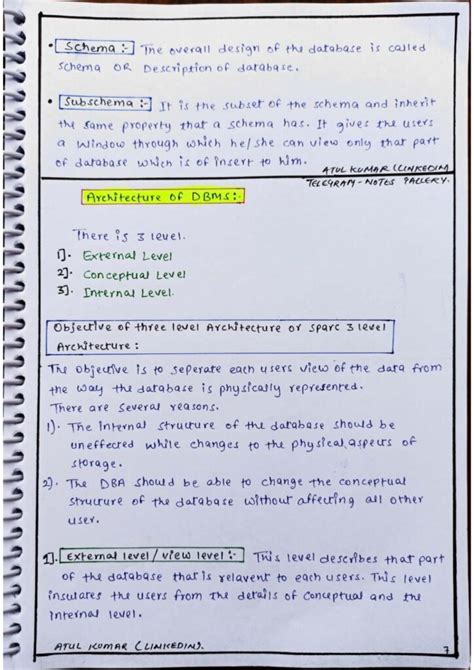 • Schema :- The overall design of the database is called
schema OR Description of database.
• Subschema :- It is the subset of the schema and inherit
the same property that a schema has. It gives the users
a window through which he/she can view only that part
of database which is of insert to him.
ATUL KUMAR (LINKEDIN)
TELEGRAM - NOTES GALLERY.
Architecture of DBMS:-
There is 3 level.
1]. External Level
2]. Conceptual Level
3]. Internal Level.
Objective of three level Architecture or sparc 3 level
Architecture :
The objective is to seperate each users view of the data from
the way the database is physically represented.
There are several reasons.
1). The internal structure of the database should be
uneffected while changes to the physical aspects of
storage.
2). The DBA should be able to change the conceptual
structure of the database without affecting all other
user.
1]. External level / view level :- This level describes that part
of the database that is relavent to each users. This level
insulates the users from the details of conceptual and the
internal level.
ATUL KUMAR (LINKEDIN).
7